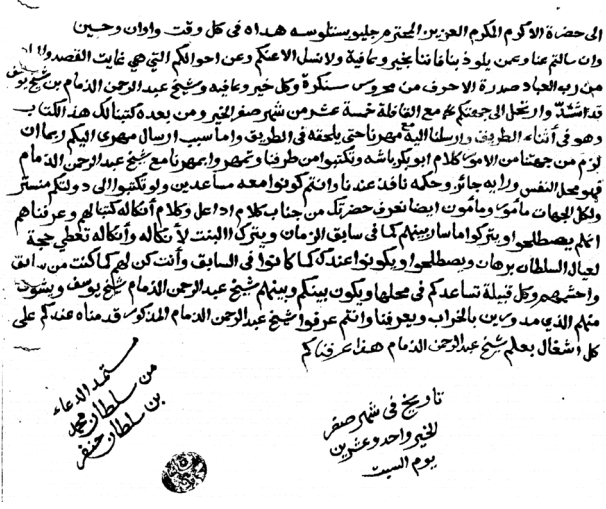 الى حضرة الاكرم المكرم العزيز المحترم هداه فى كل وقت واوان وحين
وان سالتم عنا وعن يلوذ بنا فاننا بخير وعافية ولا نسل الا عنكم وعن احوالكم التى هى غايت القصد
من رب العباد صدرة الاحرف من محروس سنكرة وكل خير وعافيه وشيخ عبد الرحمن الذمام بن شيخ يوسف
قد وارتحل الى جهتكم مع القافلة خمسة عشر من شهر صفر الخير ومن بعده كتبنا لك هذ الكتاب
وهو فى أثناء الطريق وارسلنا اليه مهرنا حتى يلحقة فى الطريق واما سبب ارسال مهرى اليكم ربما ان
لزم من جهتنا من الامور كلام ابو بكر باشه وتكتبوا من طرفنا وتمهروا بمهرنا مع شيخ عبد الرحمن الذمام
فهو محل النفس ورايه جائز وحكمه نافذ عندنا وانتم كونوا معه مساعدين ولو تكتبوا الى دولتكم
ولكل الجهات مأمور ومأمون ايضا نعرف حضرتك من جناب كلام اداعل وكلام أنكاله كتبنا لهم وعرفناهم
انهم يصطلحوا ويتركوا ما سار بينهم كما فى سابق الزمان ويتركوا البنت لأنكاله وأنكاله تعطي حجة
لعيال السلطان برهان ويصطلحوا ويكونوا عندك كما كانوا فى السابق وأنت كن لهم كما كنت من سابق
واحشمهم وكل قبيلة تساعدكم فى محلها ويكون بينكم وبينهم شيخ عبد الرحمن الذمام شيخ يوسف ويشوف
منهم الذي بالخراب ويعرفنا وانتم عرفوا شيخ عبد الرحمن الذمام المذكور قدمناه عندكم على
كل اشغال بعلم شيخ عبد الرحمن الذمام هذا عرفناكم
مستمد الدعاء
من سلطان محمد
بن سلطان حنفر
تاريخ فى شهر صفر
الخير واحد وعشرين
يوم السبت